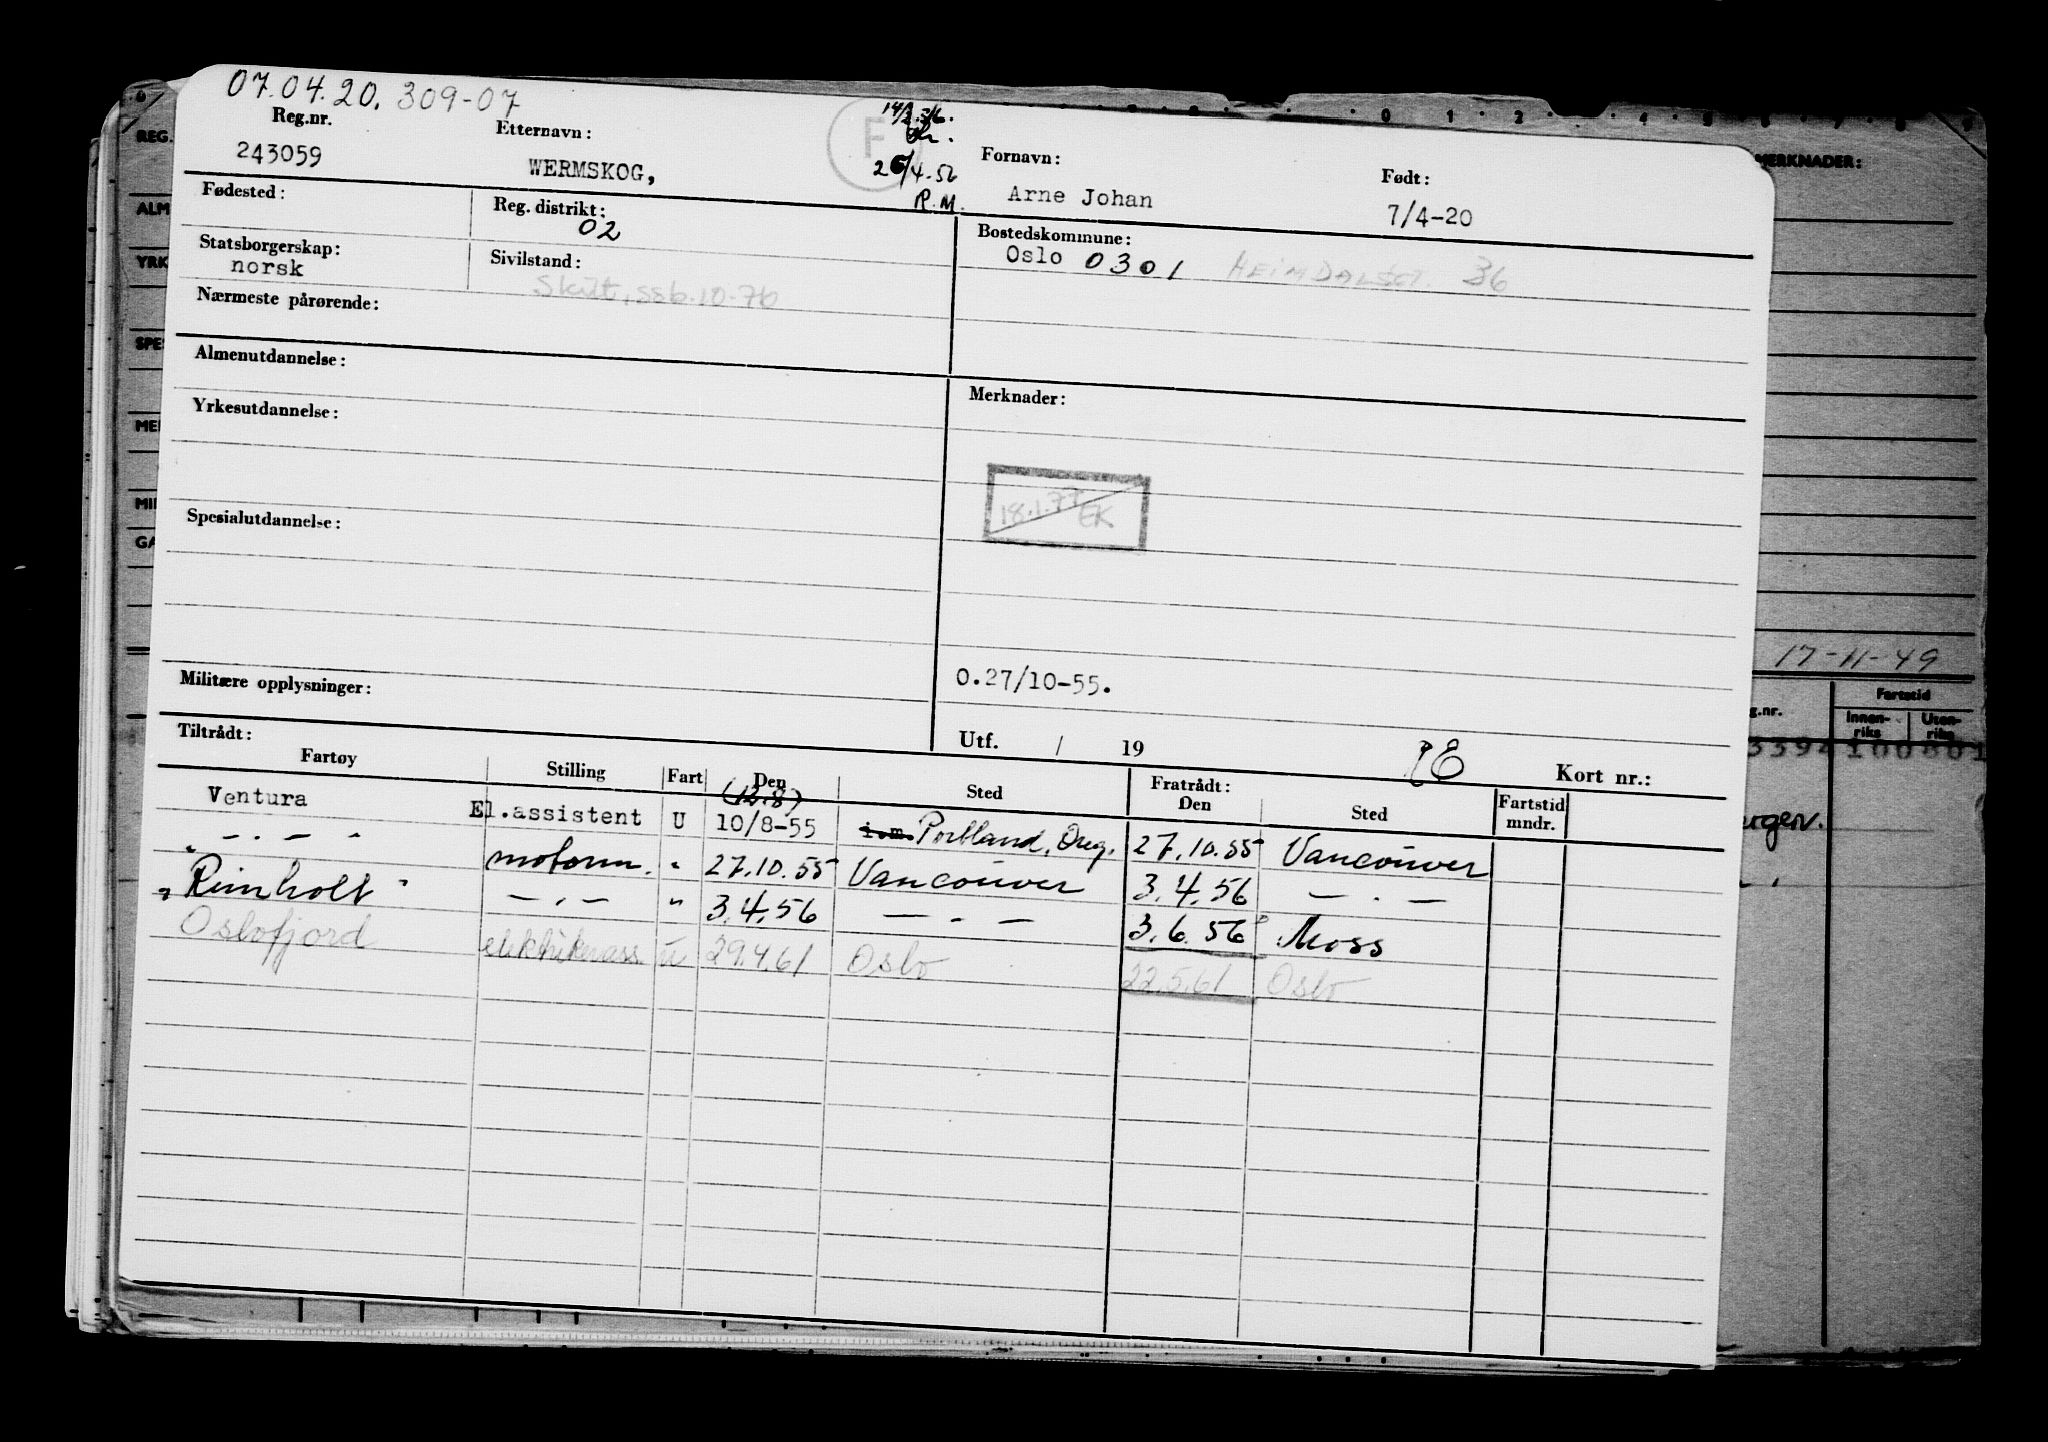 07.04.20. 309-07
Reg.nr. Etternavn: F 14/2.56. Fornavn: Født:
243059 WERMSKOG, 26/4.56 R.M. Arne Johan 7/4-20
Fødested: Reg. distrikt: 02 Bostedskommune:
Oslo 0301 HEIMDALSGT. 36
Statsborgerskap: norsk Sivilstand: Skilt, ssb.10.76
Nærmeste pårørende:
Almenutdannelse: Merknader:
Yrkesutdannelse:
18.1.77 EK
Spesialutdannelse:
O.27/10-55.
Militære opplysninger:
Utf. / 19 Kort nr.:
Tiltrådt: Fratrådt:
Fartøy Stilling Fart Den Sted Den Sted Fartstid mndr.
(12.8)
Ventura El.assistent U 10/8-55 i.m. Portland, Oreg. 27.10.55 Vancouver
" — . — " motorm. " 27.10.55 Vancouver 3.4.56 — . —
" Rimholt " — . — " 3.4.56 — . — 3.6.56 Moss
Oslofjord elektrikerass. u 29.4.61 Oslo 22.5.61 Oslo
REG.
ALM
YRK
SPES
MIL
GA
MERKNADER:
17-11-49
g.nr. Fartstid
Innen-riks Uten-riks
3394 100801